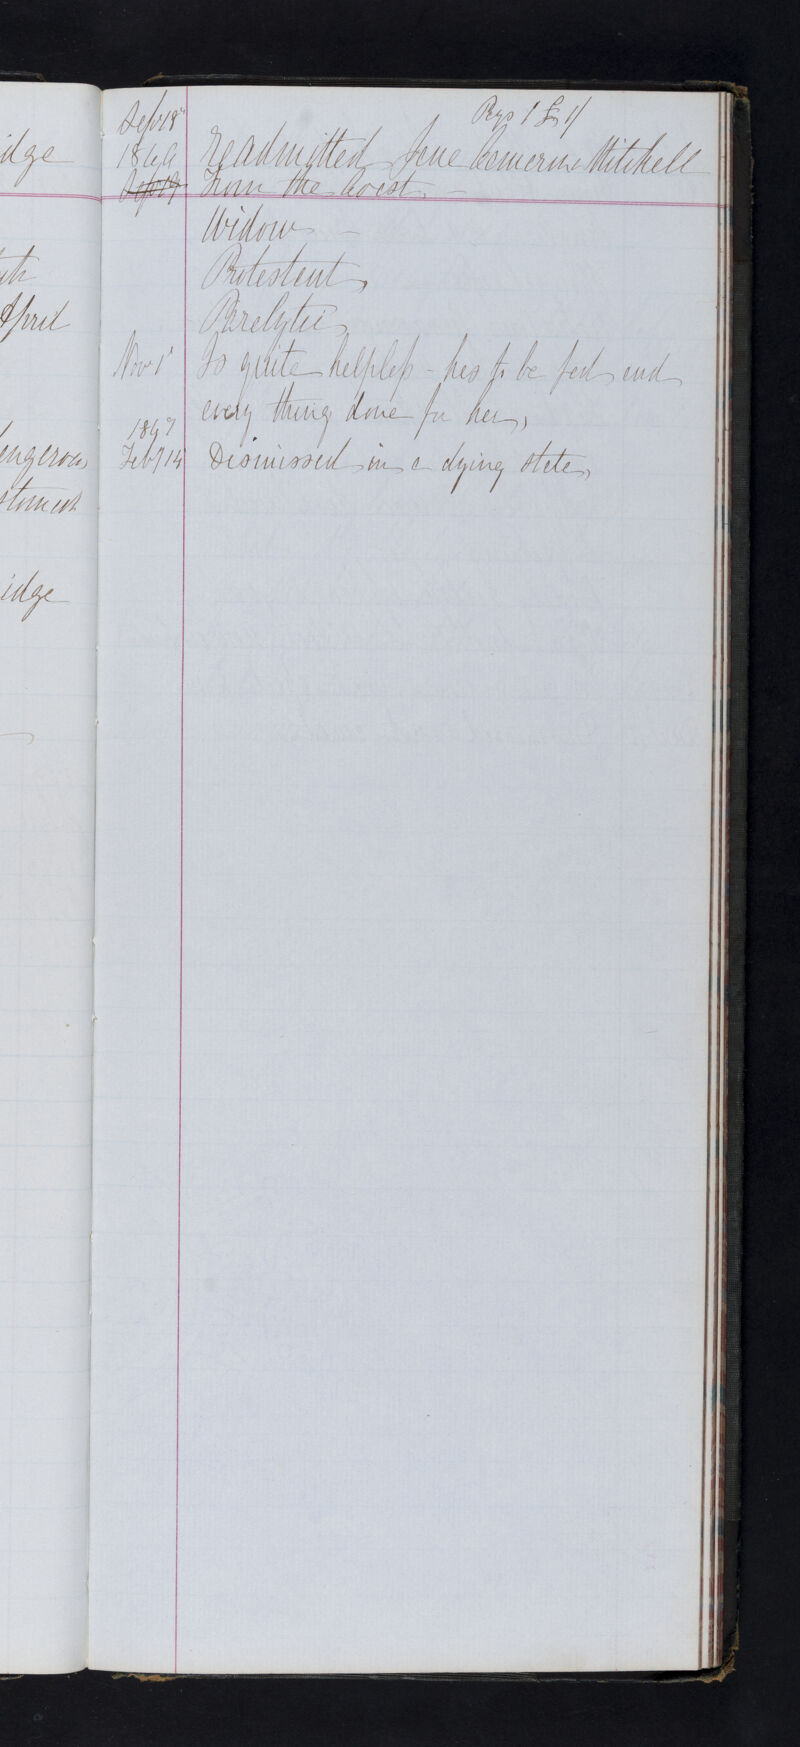 idge
April
dangerous
stomach
idge
Sept 18th
Pays 1 £ 1/
1869 readmitted Jane Cameron Mitchell
Sept 19 From the Coast
Widow
Protestant
Paralytic
Nov 1st Is quite helpless - has to be fed and
every thing done for her,
1847
Feby 14 Dismissed in a dying state,